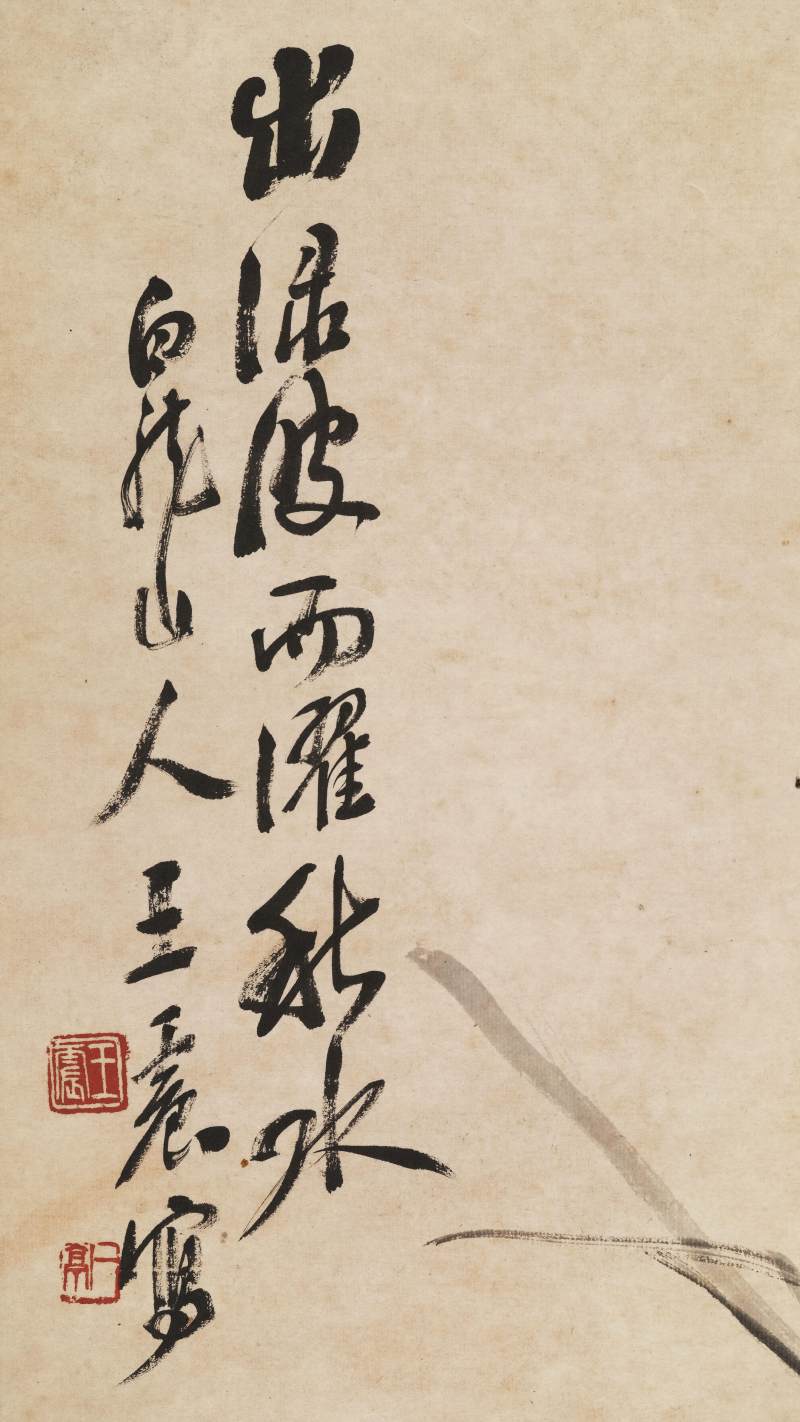 出淥波而濯秋水
白龍山人王震寫
王震
一亭